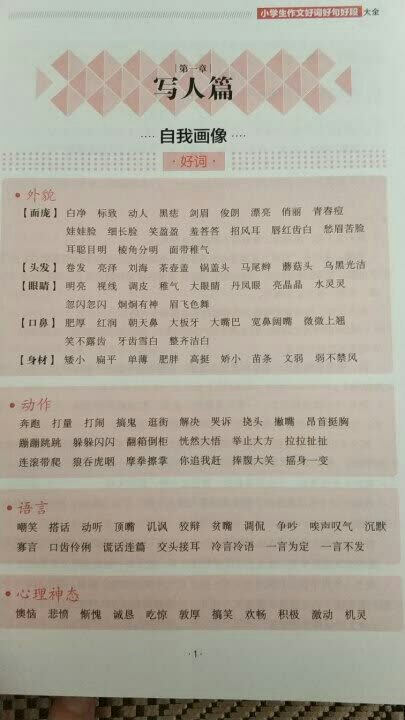 小学生作文好词好句好段大全
第一章
写人篇
自我画像
好词
外貌
【面庞】 白净 标致 动人 黑痣 剑眉 俊朗 漂亮 俏丽 青春痘
娃娃脸 细长脸 笑盈盈 羞答答 招风耳 唇红齿白 愁眉苦脸
耳聪目明 棱角分明 面带稚气
【头发】 卷发 亮泽 刘海 茶壶盖 锅盖头 马尾辫 蘑菇头 乌黑光洁
【眼睛】 明亮 视线 调皮 稚气 大眼睛 丹凤眼 亮晶晶 水灵灵
忽闪忽闪 炯炯有神 眉飞色舞
【口鼻】 肥厚 红润 朝天鼻 大板牙 大嘴巴 宽鼻阔嘴 微微上翘
笑不露齿 牙齿雪白 整齐洁白
【身材】 矮小 扁平 单薄 肥胖 高挺 娇小 苗条 文弱 弱不禁风
动作
奔跑 打量 打闹 搞鬼 逛街 解决 哭诉 挠头 撇嘴 昂首挺胸
蹦蹦跳跳 躲躲闪闪 翻箱倒柜 恍然大悟 举止大方 拉拉扯扯
连滚带爬 狼吞虎咽 摩拳擦掌 你追我赶 捧腹大笑 摇身一变
语言
嘲笑 搭话 动听 顶嘴 讥讽 狡辩 贫嘴 调侃 争吵 唉声叹气 沉默
寡言 口齿伶俐 谎话连篇 交头接耳 冷言冷语 一言为定 一言不发
心理神态
懊恼 悲愤 惭愧 诚恳 吃惊 敦厚 搞笑 欢畅 积极 激动 机灵
·1·